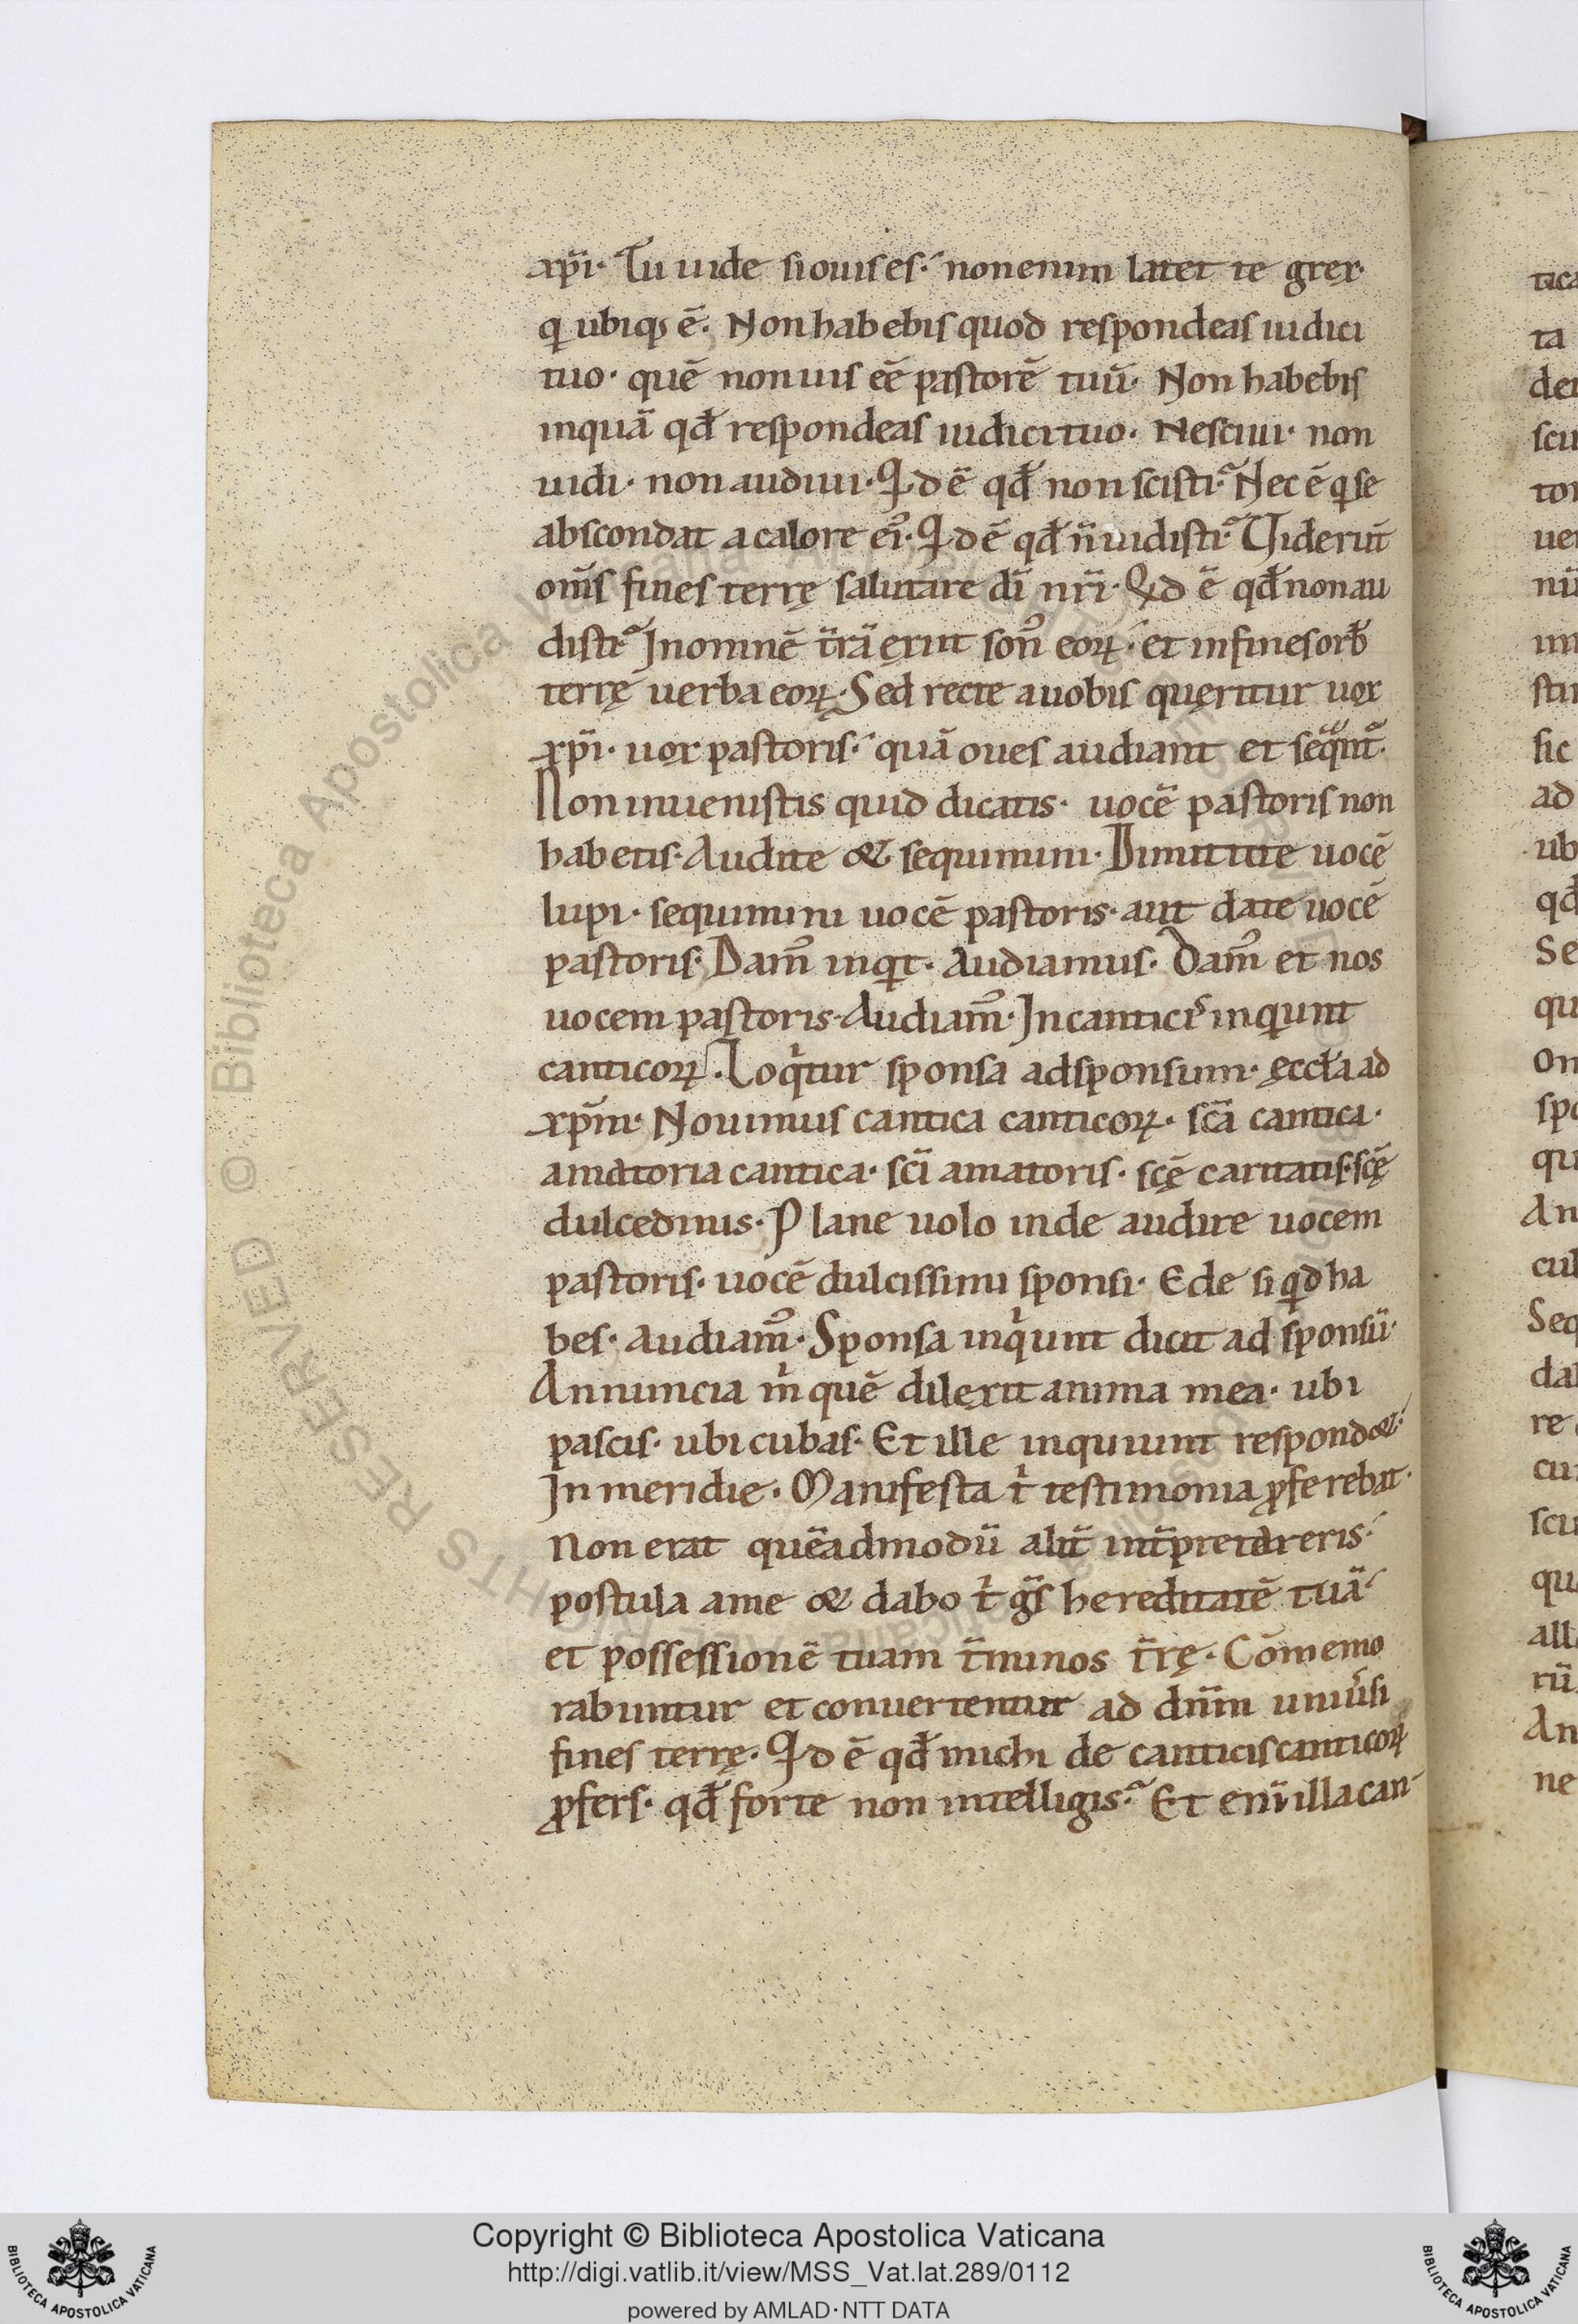 xp̄i· Tu uide si ouis es·' non enim latet te grex·
q ubiq; ē· Non habebis quod respondeas iudici
tuo· quē non uis eē pastorē tuū· Non habebis
inquā qđ respondeas iudici tuo· Nesciui· non
uidi· non audiui· Qd ē qđ non scisti? Nec ē q se
abscondat a calore ei᾽· Qd ē qđ n̄ uidisti? Uiderūt
om̄s fines terrę salutare dī nr̄i· Qd ē qđ non au
disti? In omnē t̄rā exiit son᾽ eoꝝ·' et in fines orƀ
terrę uerba eoꝝ· Sed recte a uobis quęritur uox
xp̄i· uox pastoris·' quā oues audiant et seq̄nt᾽·
Non inuenistis quid dicatis· uocē pastoris non
habetis· Audite & sequimini· Dimittite uocē
lupi· sequimini uocē pastoris· aut date uocē
pastoris· Dam᾽ inqt· Audiamus· Dam᾽ et nos
uocem pastoris· Audiam᾽· In canticis inqunt
canticoꝝ· Loqͥtur sponsa ad sponsum· ęccła ad
xp̄m· Nouimus cantica canticoꝝ· sc̄a cantica·
amatoria cantica· sc̄i amatoris· sc̄ę caritatis· sc̄ę
dulcedinis· Plane uolo inde audire uocem
pastoris· uocē dulcissimi sponsi· Ede si qd ha
bes· Audiam᾽· Sponsa inqͥunt dicit ad sponsū·
Annuncia mͥ quē dilexit anima mea· ubi
pascis· ubi cubas· Et ille inquiunt respond&·'
In meridie· Manifesta tͥ testimonia ꝓferebat·
Non erat quēadmodū alit̄ int̄pretareris·'
postula a me & dabo tͥ gs̄ hereditatē tuā·'
et possessionē tuam t̄minos t̄rę· Cōmemo
rabuntur et conuertentur ad dn̄m uniūsi
fines terrę· Qd ē qđ michi de canticis canticoꝝ
ꝓfers· qđ forte non intelligis? Et enī illa can-
tica
ta
scu
uer
sic
ad
ub
qđ
Se
qu
An
cul
Seq
re
scu
qu
all
rū
An
ne
© Biblioteca Apostolica Vaticana
Copyright © Biblioteca Apostolica Vaticana
http://digi.vatlib.it/view/MSS_Vat.lat.289/0112
powered by AMLAD·NTT DATA
BIBLIOTECA APOSTOLICA VATICANA
BIBLIOTECA APOSTOLICA VATICANA